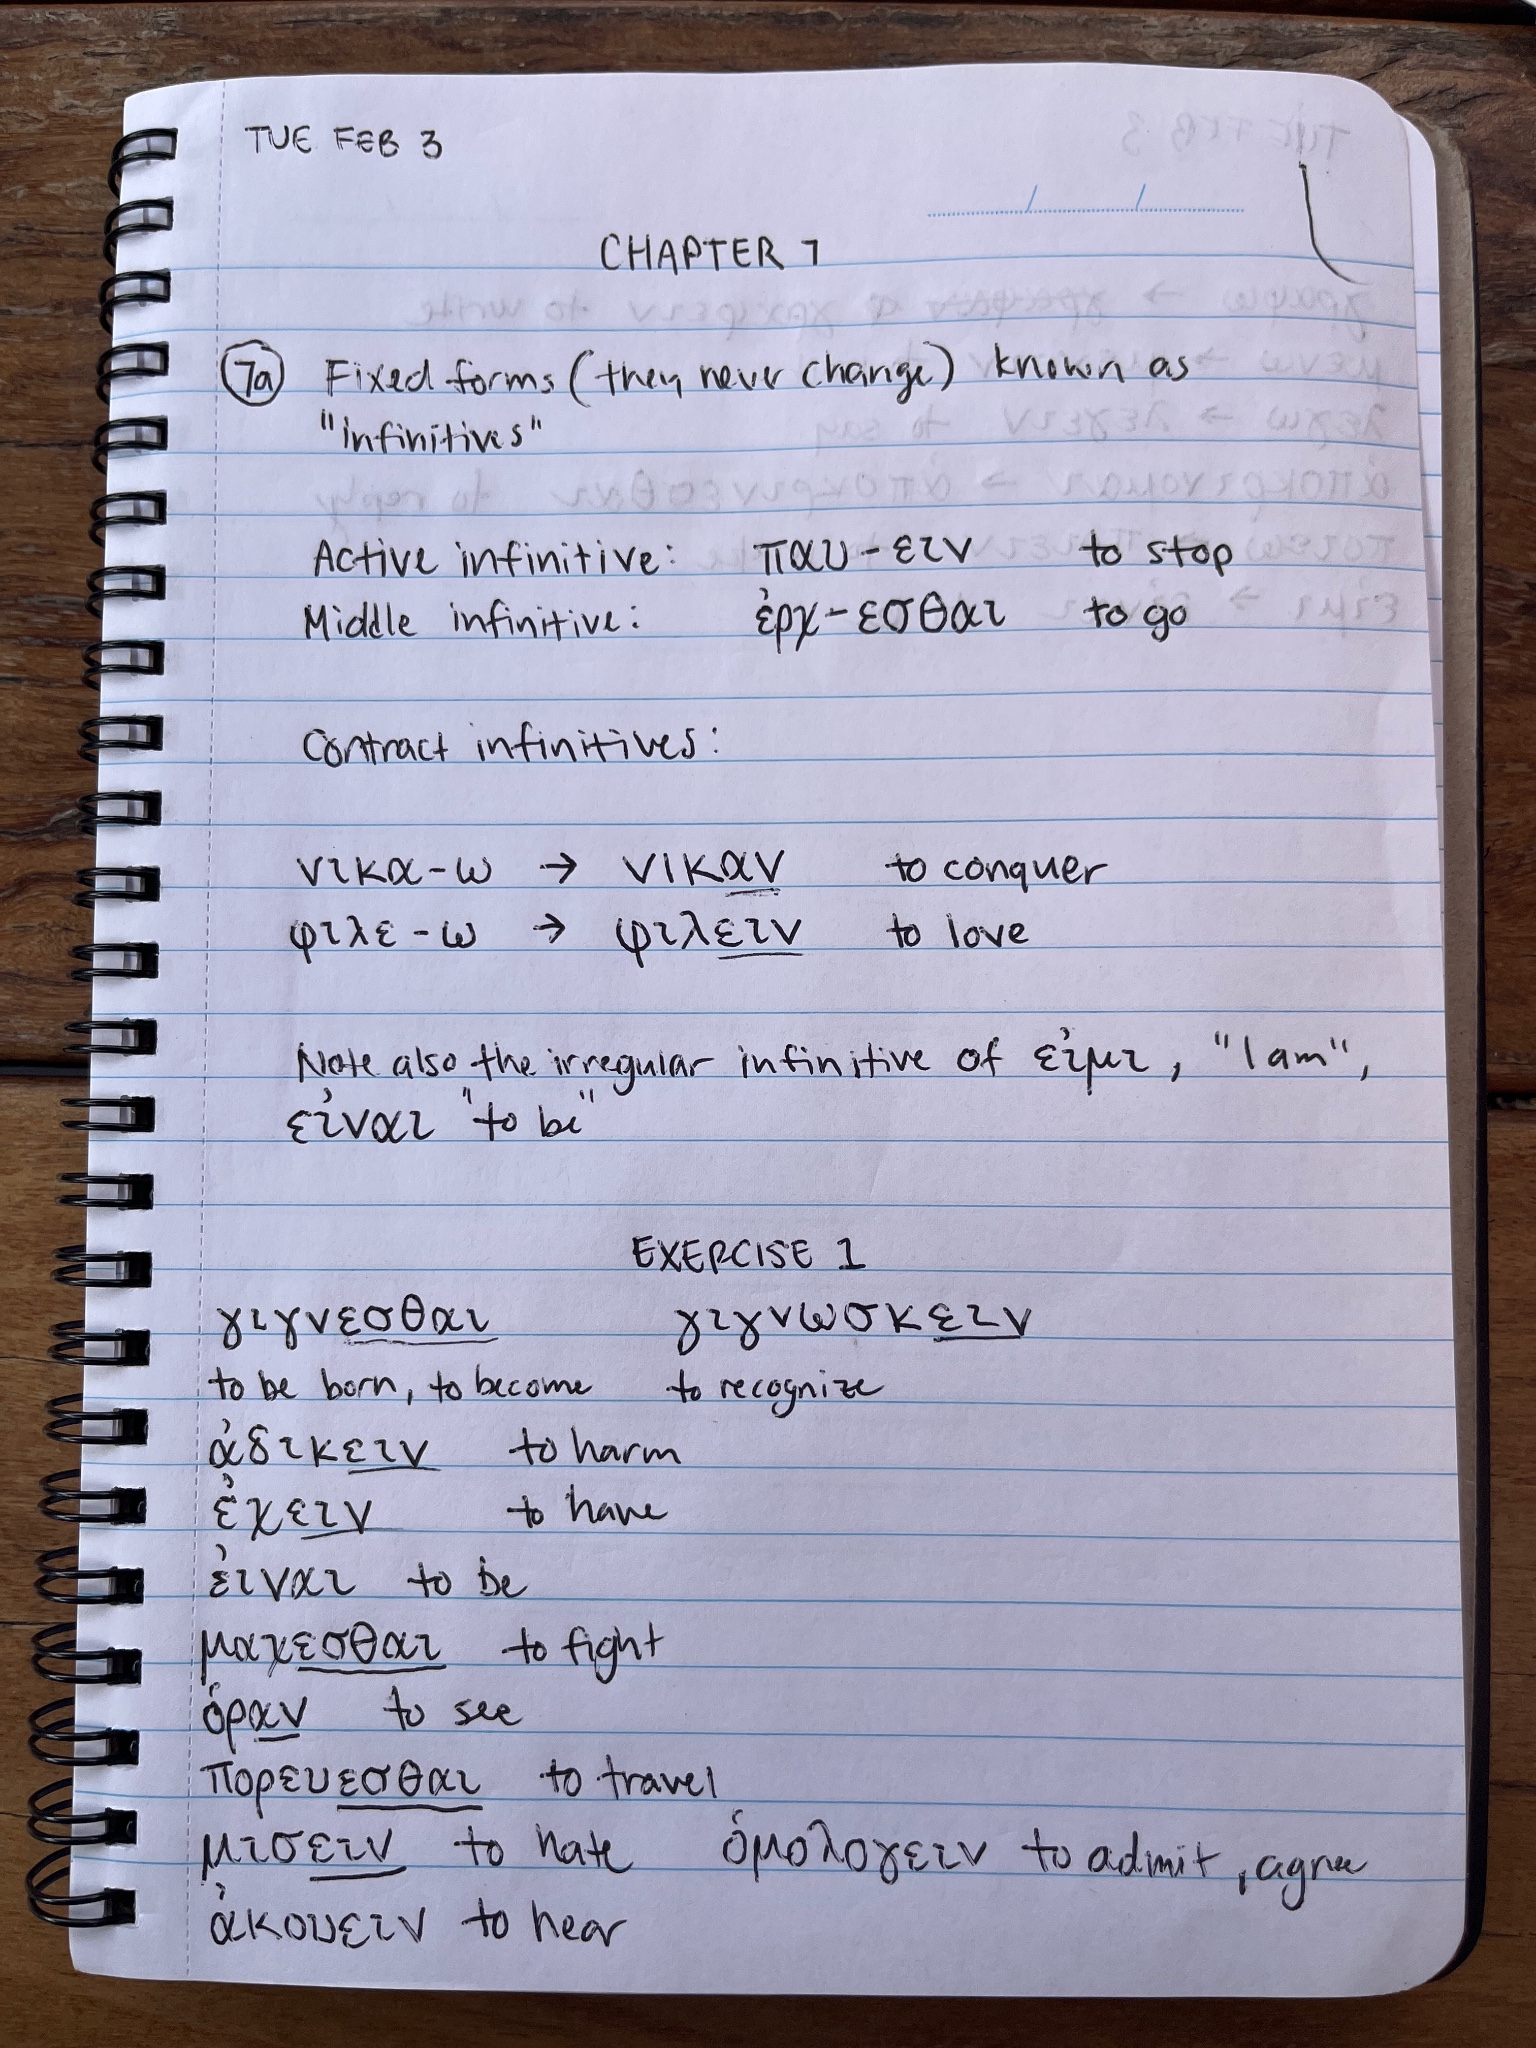 TUE FEB 3
CHAPTER 7
7a Fixed forms (they never change) known as
"infinitives"
Active infinitive: παυ-ειν to stop
Middle infinitive: ἐρχ-εσθαι to go
Contract infinitives:
νικα-ω → νικαν to conquer
φιλε-ω → φιλειν to love
Note also the irregular infinitive of εἰμι, "I am",
εἰναι "to be"
EXERCISE 1
γιγνεσθαι γιγνωσκειν
to be born, to become to recognize
ἀδικειν to harm
ἐχειν to have
ἐιναι to be
μαχεσθαι to fight
ὁραν to see
πορευεσθαι to travel
μισειν to hate ὁμολογειν to admit, agree
ἀκουειν to hear